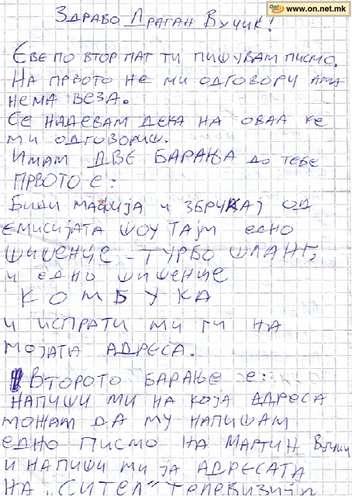 www.on.net.mk
ЗДРАВО ДРАГАН ВУЧИЌ!
ЕВЕ ПО ВТОР ПАТ ТИ ПИШУВАМ ПИСМО.
НА ПРВОТО НЕ МИ ОДГОВОРИ АМА
НЕМА ВЕЗА.
СЕ НАДЕВАМ ДЕКА НА ОВАА ЌЕ
МИ ОДГОВОРИШ.
ИМАМ ДВЕ БАРАЊА ДО ТЕБЕ
ПРВОТО Е:
БИДИ МАГИЈА И ЗБРЧКАЈ ОД
ЕМИСИЈАТА ШОУ ТАЈМ ЕДНО
ШИШЕНЦЕ - ТУРБО ШЛАНГ,
И ЕДНО ШИШЕНЦЕ
КОМБУКА
И ИСПРАТИ МИ ГИ НА
МОЈАТА АДРЕСА.
ВТОРОТО БАРАЊЕ Е:
НАПИШИ МИ НА КОЈА АДРЕСА
МОЖАМ ДА МУ НАПИШАМ
ЕДНО ПИСМО НА МАРТИН ВУЧИЌ
И НАПИШИ МИ ЈА АДРЕСАТА
НА „СИТЕЛ" ТЕЛЕВИЗИЈА